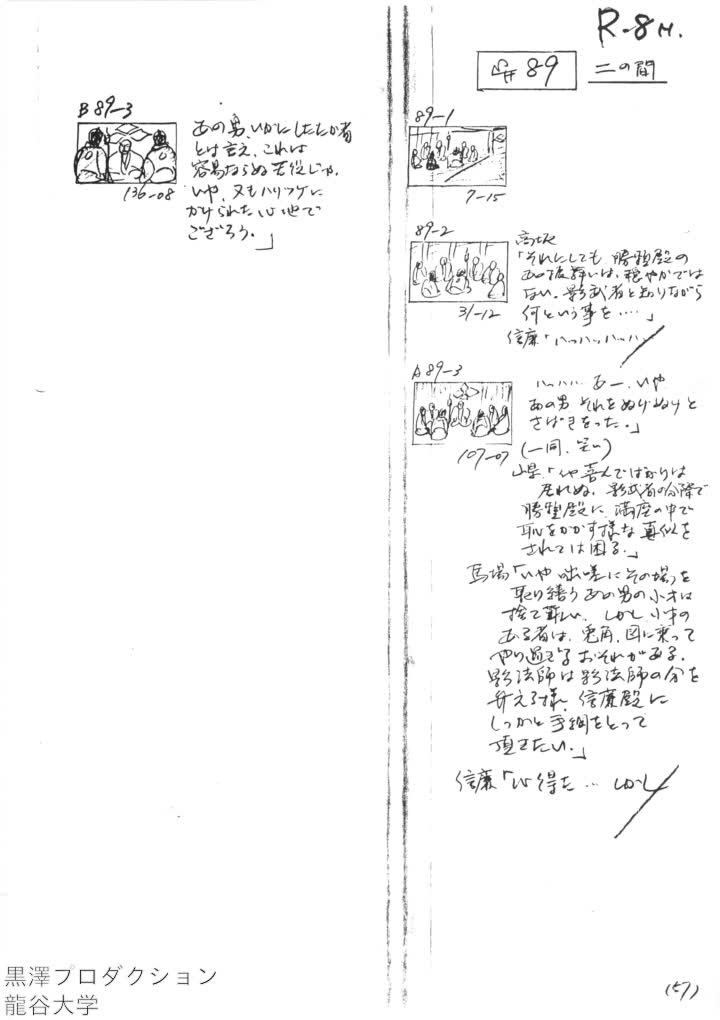 R-8 H.
#89 二の間
89-1
7-15
89-2
31-12
高坂
「それにしても 勝頼殿の
あの振舞いは、穏やかでは
ない。影武者と知りながら
何という事を‥‥」
信廉「ハッハッハッハッ
A 89-3
107-07
ハハハハ あー、いや
あの男 それをぬけぬけと
さばきをった。」
(一同、笑い)
山県「いや喜んでばかりは
居れぬ。影武者の分際で
勝頼殿に 満座の中で
恥をかかす様な真似を
されては困る。」
馬場「いや 咄嗟にその場を
取り繕う あの男の小才は
捨て難い。しかし 小才の
ある者は、兎角、図に乗って
やり過ぎる おそれがある。
影法師は影法師の分を
弁える様、信廉殿に
しっかと手綱をとって
頂きたい。」
信廉「心得た… しかし
B 89-3
136-08
あの男、いかにしたたか者
とは言え、これは
容易ならぬ苦役じゃ。
いや、又もハリツケに
かけられた心地で
ござろう。」
(57)
黒澤プロダクション
龍谷大学